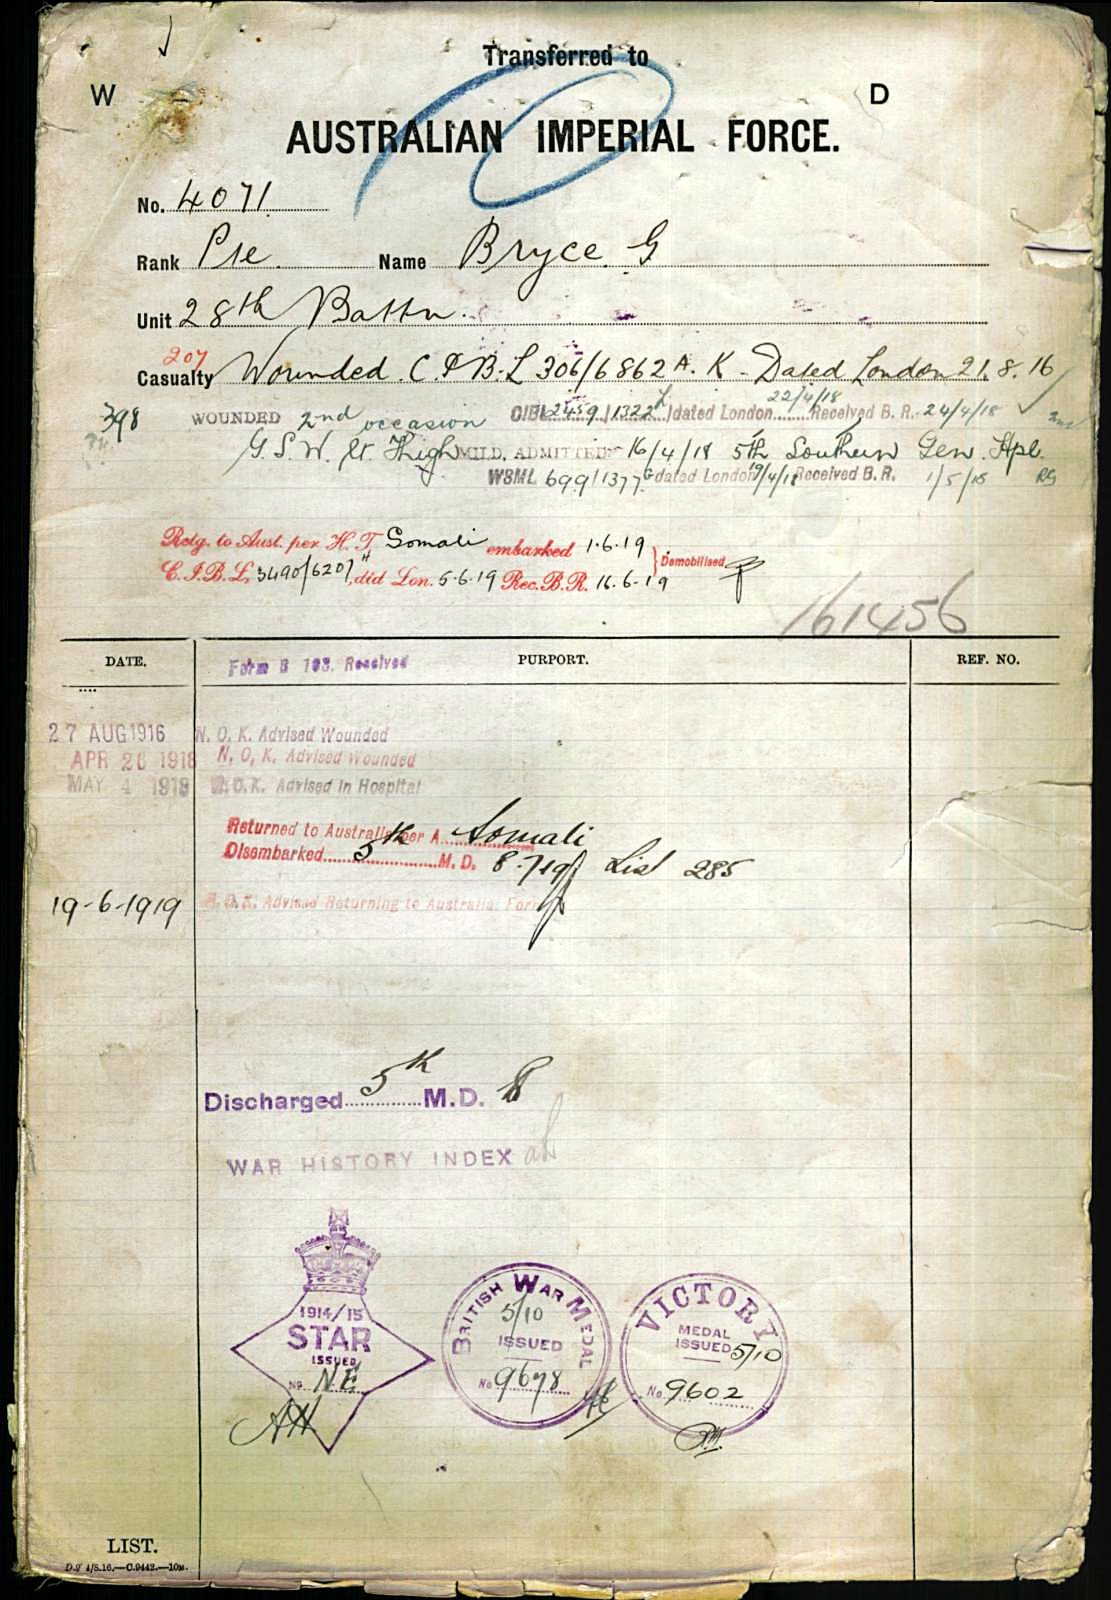 Transferred to
W D
AUSTRALIAN IMPERIAL FORCE.
No. 4071
Rank Pte Name Bryce. G
Unit 28th Battn.
207
Casualty Wounded. C.I.B.L 306/6862 A. K - Dated London 21.8.16
398 WOUNDED 2nd occasion CIBL 2459/1322 dated London 22/4/18 Received B. R. 24/4/18
G.S.W. Lt. Thigh MILD, ADMITTED 16/4/18 5th Southern Gen. Hpl.
W8ML 699/1377 G dated London 19/4/18 Received B.R. 1/5/18
Retg. to Aust. per H. T. Somali embarked 1.6.19
Demobilised
C.I.B.L. 3490/6207 H did Lon. 5.6.19 Rec. B.R. 16.6.19
161456
DATE. PURPORT. REF. NO.
Form B 103. Received
27 AUG 1916 N. O. K. Advised Wounded
APR 26 1918 N. O. K. Advised Wounded
MAY 4 1918 N.O.K. Advised in Hospital
Returned to Australia per A. Somali
Disembarked 5th M. D. 8.7.19 List 285
19-6-1919 N.O.K. Advised Returning to Australia. Form
Discharged 5th M.D.
WAR HISTORY INDEX
1914/15
STAR
ISSUED
No. N.E.
AH
BRITISH WAR MEDAL
5/10
ISSUED
No 9678
VICTORY
MEDAL
ISSUED 5/10
No. 9602
LIST.
D.2 4/8.16.—C.9442.—10M.